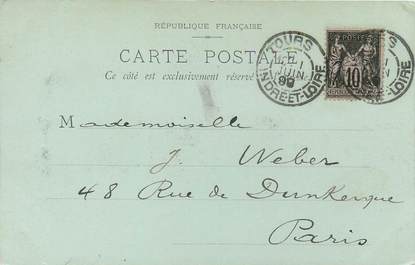 RÉPUBLIQUE FRANÇAISE
CARTE POSTALE
Ce côté est exclusivement réservé
TOURS
JUIN
INDRE-ET-LOIRE
POSTES
10
Mademoiselle
J. Weber
48 Rue de Dunkerque
Paris